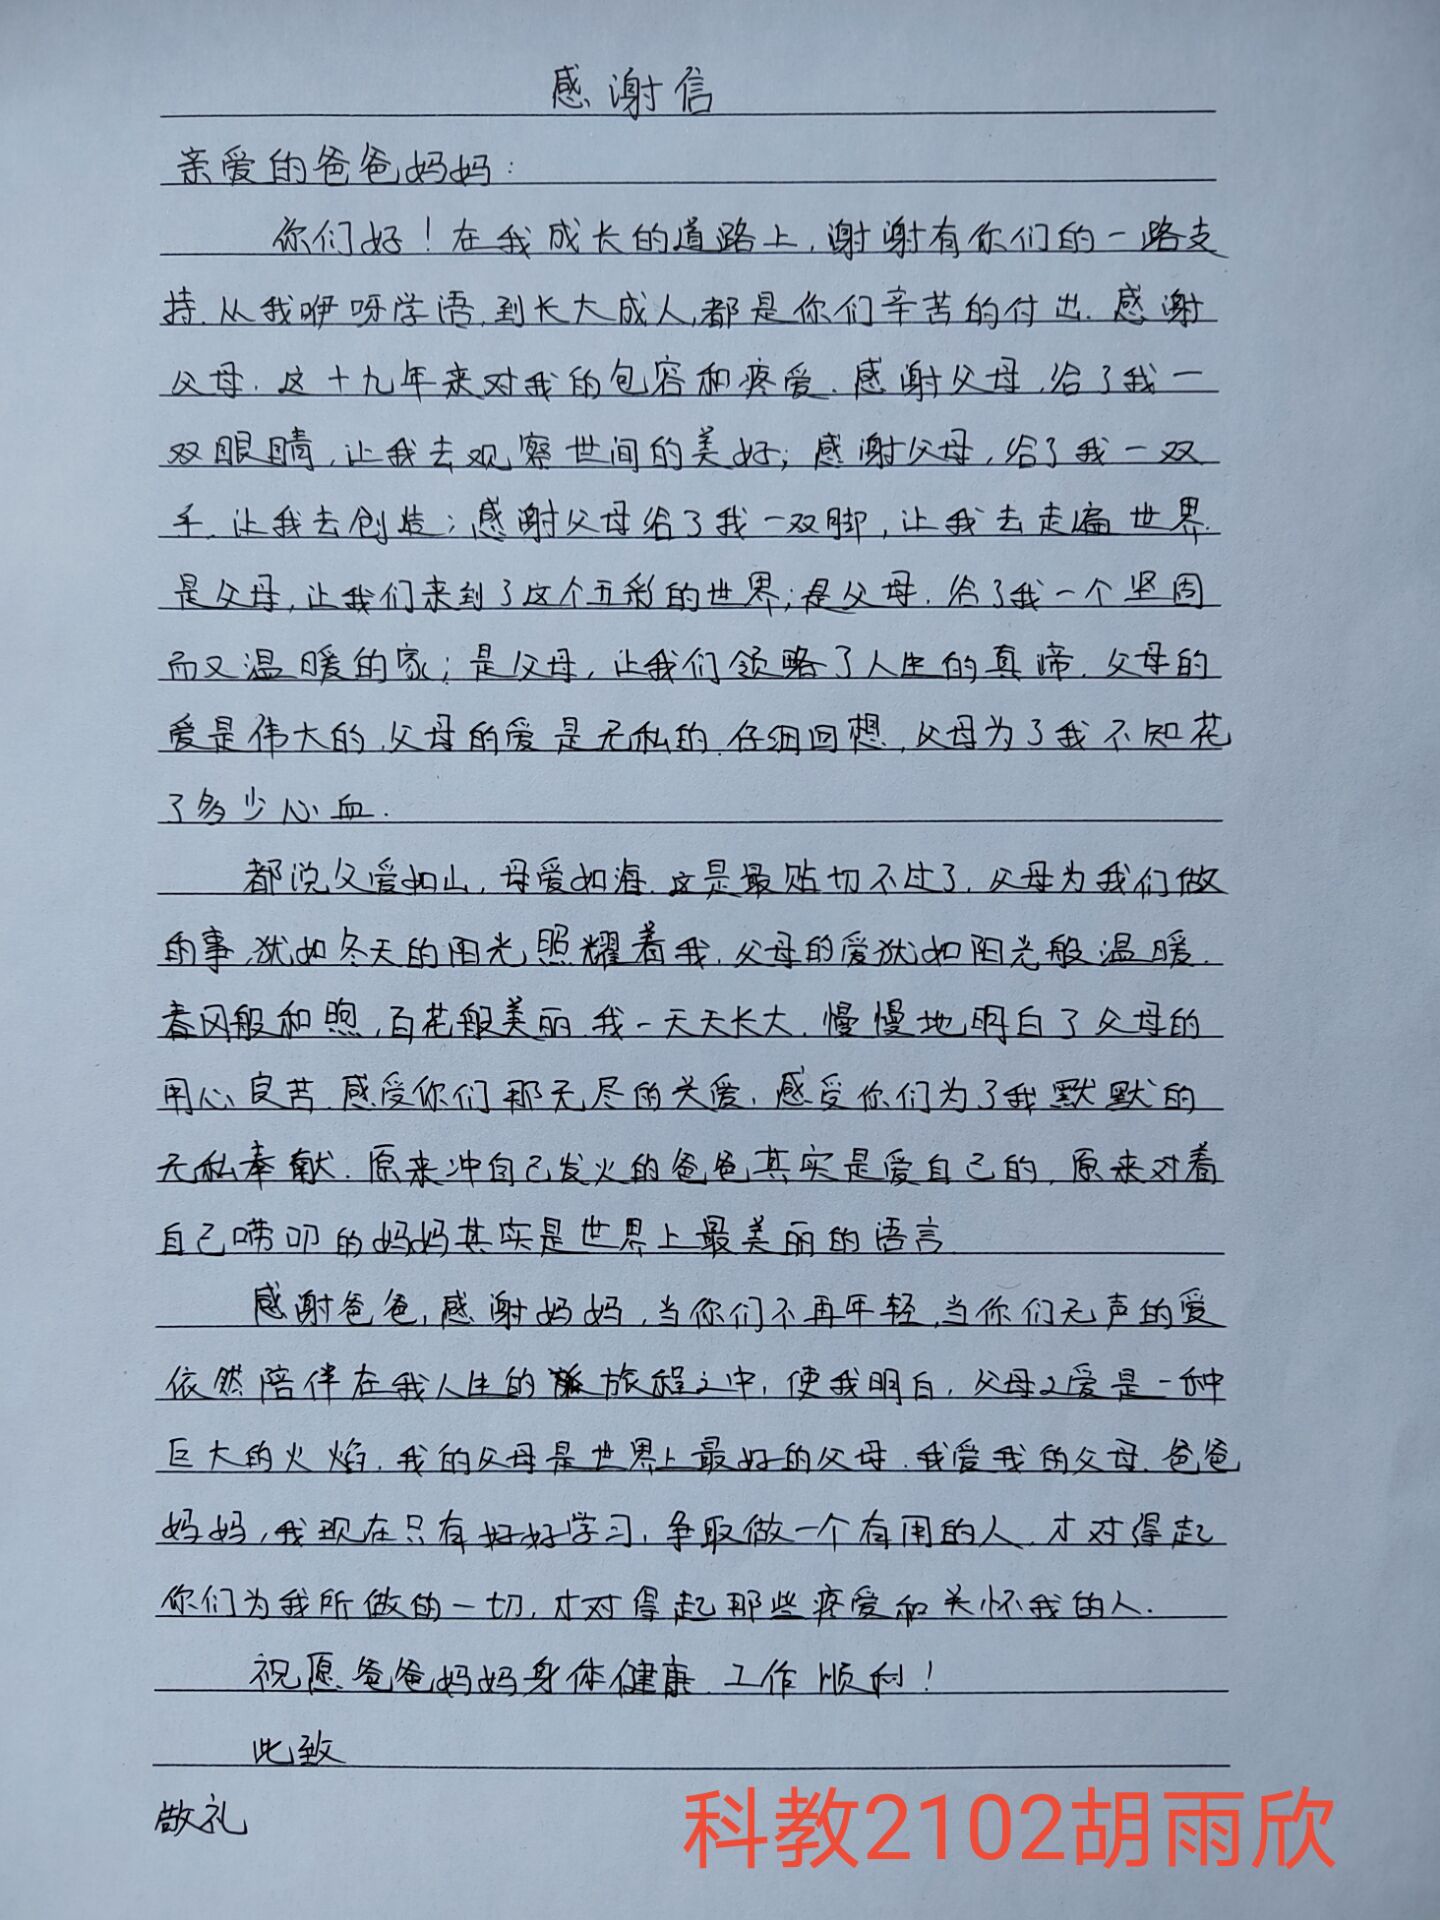 感谢信
亲爱的爸爸妈妈：
你们好！在我成长的道路上，谢谢有你们的一路支
持.从我咿呀学语,到长大成人,都是你们辛苦的付出.感谢
父母.这十九年来对我的包容和疼爱.感谢父母,给了我一
双眼睛,让我去观察世间的美好;感谢父母,给了我一双
手,让我去创造;感谢父母给了我一双脚,让我去走遍世界.
是父母,让我们来到了这个五彩的世界;是父母.给了我一个坚固
而又温暖的家;是父母,让我们领略了人生的真谛.父母的
爱是伟大的,父母的爱是无私的.仔细回想,父母为了我不知花
了多少心血.
都说父爱如山,母爱如海.这是最贴切不过了.父母为我们做
的事,犹如冬天的阳光照耀着我.父母的爱犹如阳光般温暖.
春风般和煦,百花般美丽.我一天天长大.慢慢地明白了父母的
用心良苦.感受你们那无尽的关爱.感受你们为了我默默的
无私奉献.原来冲自己发火的爸爸其实是爱自己的,原来对着
自己唠叨的妈妈其实是世界上最美丽的语言.
感谢爸爸,感谢妈妈,当你们不再年轻,当你们无声的爱
依然陪伴在我人生的旅程之中,使我明白,父母之爱是一种
巨大的火焰.我的父母是世界上最好的父母.我爱我的父母.爸爸
妈妈,我现在只有好好学习,争取做一个有用的人.才对得起
你们为我所做的一切,才对得起那些疼爱和关怀我的人.
祝愿爸爸妈妈身体健康.工作顺利!
此致
敬礼
科教2102胡雨欣